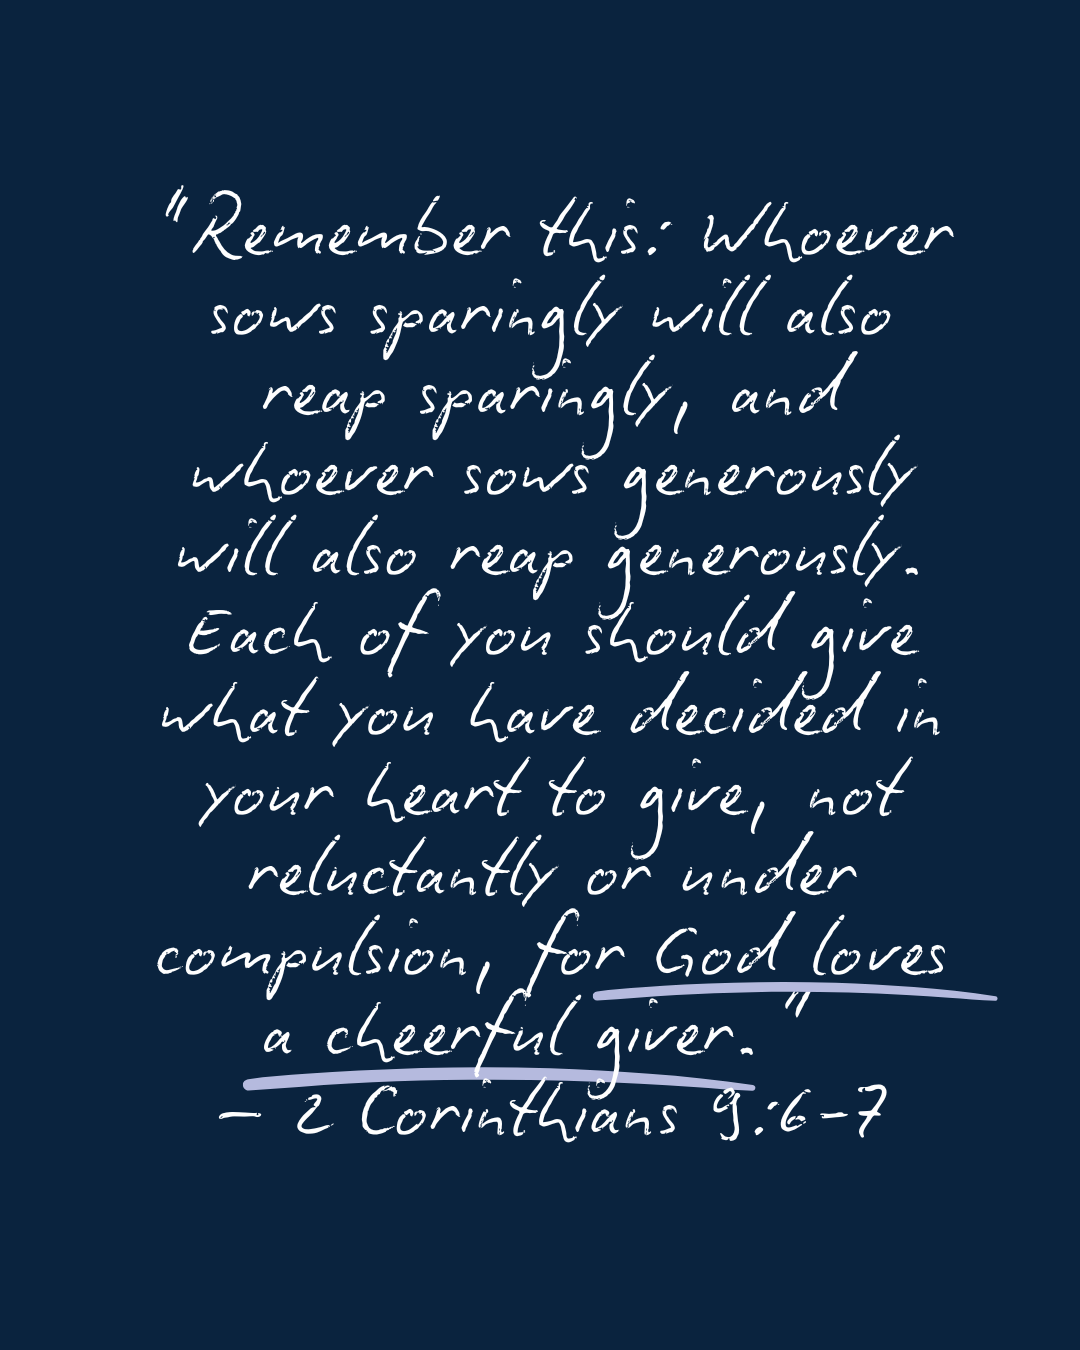 "Remember this: Whoever
sows sparingly will also
reap sparingly, and
whoever sows generously
will also reap generously.
Each of you should give
what you have decided in
your heart to give, not
reluctantly or under
compulsion, for God loves
a cheerful giver."
– 2 Corinthians 9:6-7